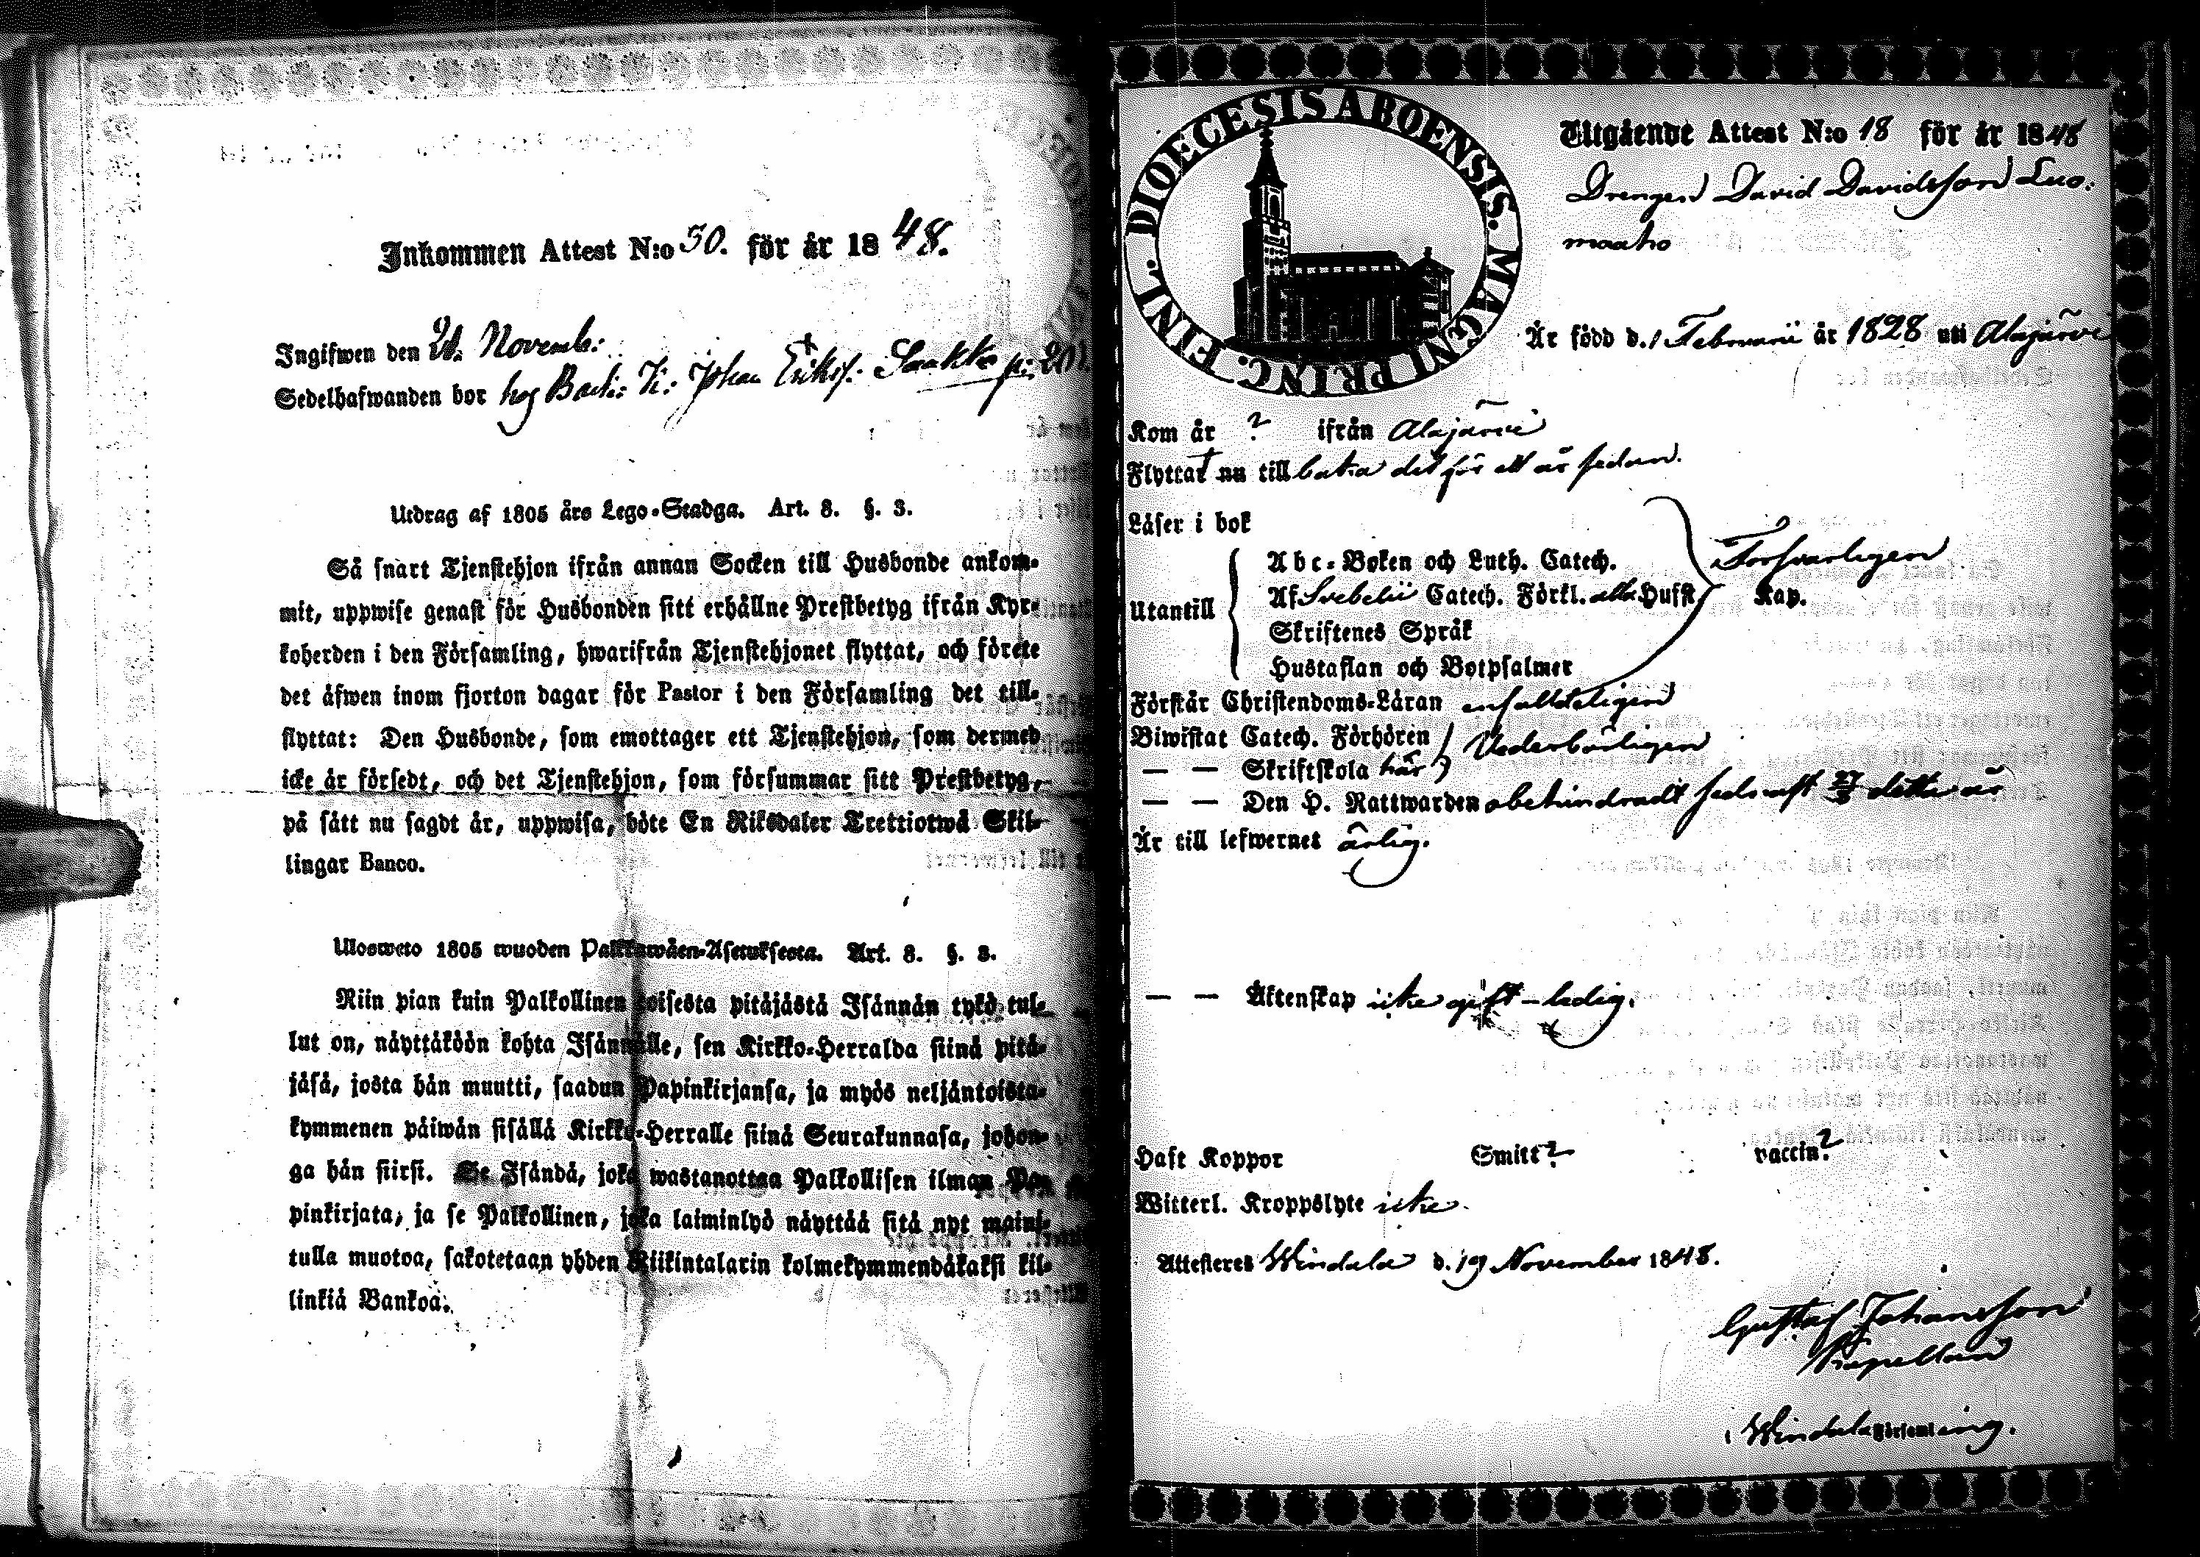 Inkommen Attest N:o 50. för år 1848.
Ingifwen den 21. Novemb:
Sedelhafwanden bor hos Johan Eriks: p: 201.
Utdrag af 1805 års Lego-Stadga. Art. 8. §. 3.
Så snart Tjenstehjon ifrån annan Socken till Husbonde ankom-
mit, uppwise genast för Husbonden sitt erhållne Prestbetyg ifrån Kyr-
koherden i den Församling, hwarifrån Tjenstehjonet flyttat, och förete
det åfwen inom fjorton dagar för Pastor i den Församling det till-
flyttat: Den Husbonde, som emottager ett Tjenstehjon, som dermed
icke år försedt, och det Tjenstehjon, som försummar sitt Prestbetyg,
på sått nu sagdt år, uppwisa, böte En Riksdaler Trettiotwå Skil-
lingar Banco.
Ulosweto 1805 wuoden Palkkawåen-Asetuksesta. Art. 8. §. 3.
Niin pian kuin Palkollinen toisesta pitåjåstå Isånnån tykö tul-
lut on, nåyttåköön kohta Isånnålle, sen Kirkko-Herralda siinå pitå-
jåså, josta hån muutti, saadun Papinkirjansa, ja myös neljåntoista-
kymmenen påiwån sisållå Kirkko-Herralle siinå Seurakunnasa, johon-
ga hån siirsi. Se Isåndå, joka wastanottaa Palkollisen ilman Pa-
pinkirjata, ja se Palkollinen, joka laiminlyö nåyttåå sitå nyt maini-
tulla muotoa, sakotetaan yhden Riikintalarin kolmekymmendåkaksi kil-
linkiå Bankoa.
DIOECESIS ABOENSIS. MAGNI PRINC. FINL.
Utgående Attest N:o 18 för år 1848
Drengen David Davidsson Luo:
maaho
Är född d. 1 Februarii år 1828 uti Alajärvi
Kom år ? ifrån Alajärvi
Flyttat nu tillbaka det för ett år sedan.
Läser i bok
Utantill
Abc-Boken och Luth. Catech.
Af Svebelii Catech. Förkl. alla Hufst Kap.
Försvarligen
Skriftenes Språk
Hustaflan och Botpsalmer
Förstår Christendoms-Läran enfalldeligen
Biwistat Catech. Förhören
— — Skriftskola här
Vederbörligen
— — Den H. Nattwarden obehindradt sednast 27/8 detta år
Är till lefwernet ärlig.
— — Äktenskap icke gift – ledig.
Haft Koppor Smitt ? vaccin. ?
Witterl. Kroppslyte icke.
Attesteres Windala d. 19 November 1848.
Gustaf Johansson
Kapellan
i Windala Församling.